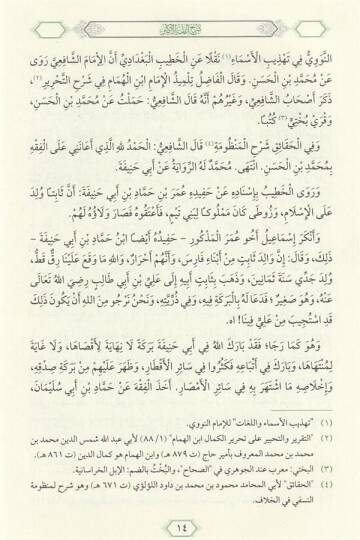 شرح الفقه الأكبر
النَّوَوِيُّ فِي تَهْذِيبِ الْأَسْمَاءِ(١) نَقْلًا عَنِ الْخَطِيبِ الْبَغْدَادِيِّ أَنَّ الْإِمَامَ الشَّافِعِيَّ رَوَى
عَنْ مُحَمَّدِ بْنِ الْحَسَنِ. وَقَالَ الْفَاضِلُ تِلْمِيذُ الْإِمَامِ ابْنِ الْهُمَامِ فِي شَرْحِ التَّحْرِيرِ(٢)،
ذَكَرَ أَصْحَابُ الشَّافِعِيِّ، وَغَيْرُهُمْ أَنَّهُ قَالَ الشَّافِعِيُّ: حَمَلْتُ عَنْ مُحَمَّدِ بْنِ الْحَسَنِ،
وَقْرَيْ بُخْتِيٍّ(٣) كُتُبًا.
وَفِي الْحَقَائِقِ شَرْحِ الْمَنْظُومَةِ(٤) قَالَ الشَّافِعِيُّ: الْحَمْدُ لِلّٰهِ الَّذِي أَعَانَنِي عَلَى الْفِقْهِ
بِمُحَمَّدِ بْنِ الْحَسَنِ. انْتَهَى. مُحَمَّدٌ لَهُ الرِّوَايَةُ عَنْ أَبِي حَنِيفَةَ.
وَرَوَى الْخَطِيبُ بِإِسْنَادِهِ عَنْ حَفِيدِهِ عُمَرَ بْنِ حَمَّادِ بْنِ أَبِي حَنِيفَةَ: أَنَّ ثَابِتًا وُلِدَ
عَلَى الْإِسْلَامِ، وَزُوطَى كَانَ مَمْلُوكًا لِبَنِي تَيْمٍ، فَأَعْتَقُوهُ فَصَارَ وَلَاؤُهُ لَهُمْ.
وَأَنْكَرَ إِسْمَاعِيلُ أَخُو عُمَرَ الْمَذْكُورِ - حَفِيدُهُ أَيْضًا ابْنُ حَمَّادِ بْنِ أَبِي حَنِيفَةَ -
ذٰلِكَ، وَقَالَ: إِنَّ وَالِدَ ثَابِتٍ مِنْ أَبْنَاءِ فَارِسَ، وَأَنَّهُمْ أَحْرَارٌ، وَاللهِ مَا وَقَعَ عَلَيْنَا رِقٌّ قَطُّ،
وُلِدَ جَدِّي سَنَةَ ثَمَانِينَ، وَذَهَبَ بِثَابِتٍ أَبِيهِ إِلَى عَلِيِّ بْنِ أَبِي طَالِبٍ رَضِيَ اللهُ تَعَالَى
عَنْهُ، وَهُوَ صَغِيرٌ؛ فَدَعَا لَهُ بِالْبَرَكَةِ فِيهِ، وَفِي ذُرِّيَّتِهِ، وَنَحْنُ نَرْجُو مِنَ اللهِ أَنْ يَكُونَ ذٰلِكَ
قَدِ اسْتُجِيبَ مِنْ عَلِيٍّ فِينَا! اه.
وَهُوَ كَمَا رَجَا؛ فَقَدْ بَارَكَ اللهُ فِي أَبِي حَنِيفَةَ بَرَكَةً لَا نِهَايَةَ لِأَقْصَاهَا، وَلَا غَايَةَ
لِمُنْتَهَاهَا، وَبَارَكَ فِي أَتْبَاعِهِ فَكَثُرُوا فِي سَائِرِ الْأَقْطَارِ، وَظَهَرَ عَلَيْهِمْ مِنْ بَرَكَةِ صِدْقِهِ،
وَإِخْلَاصِهِ مَا اشْتَهَرَ بِهِ فِي سَائِرِ الْأَمْصَارِ. أَخَذَ الْفِقْهَ عَنْ حَمَّادِ بْنِ أَبِي سُلَيْمَانَ،
(١) "تهذيب الأسماء واللغات" للإمام النووي.
(٢) "التقرير والتحبير على تحرير الكمال ابن الهمام" (٨٨/١) لأبي عبد الله شمس الدين محمد بن
محمد بن محمد المعروف بأمير حاج (ت ٨٧٩ هـ) وابن الهمام هو كمال الدين (ت ٨٦١ هـ).
(٣) البختي: معرب عند الجوهري في "الصحاح"، والبُخْتُ بالضم: الإبل الخراسانية.
(٤) "الحقائق" لأبي المحامد محمود بن محمد بن داود اللؤلؤي (ت ٦٧١ هـ) وهو شرح لمنظومة
النسفي في الخلاف.
١٤